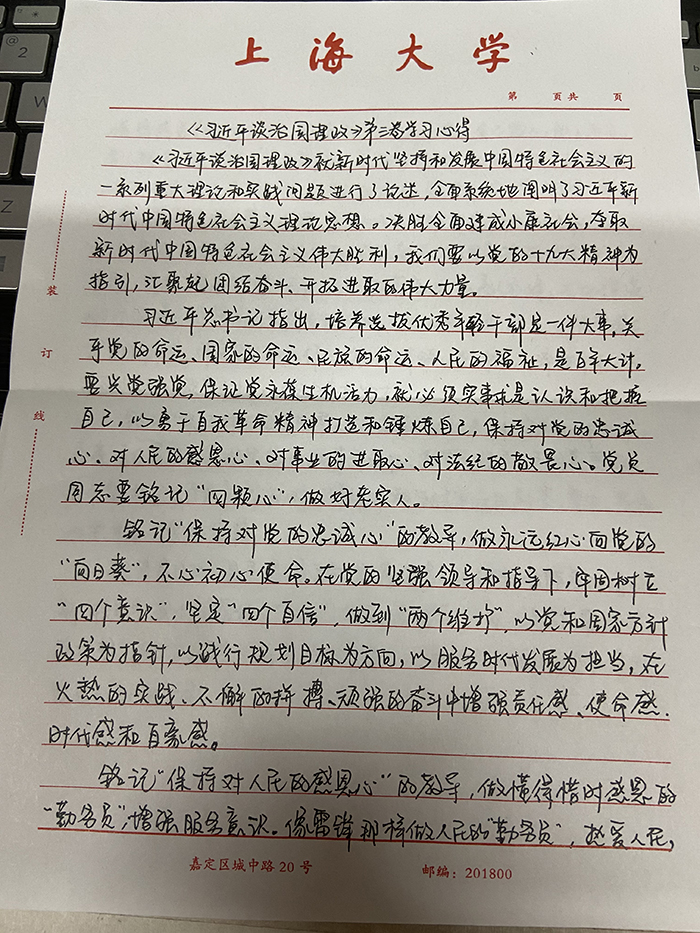 上海大学
第 页共 页
《习近平谈治国理政》第三卷学习心得
《习近平谈治国理政》就新时代坚持和发展中国特色社会主义的
一系列重大理论和实践问题进行了论述,全面系统地阐明了习近平新
时代中国特色社会主义理论思想。决胜全面建成小康社会,夺取
新时代中国特色社会主义伟大胜利,我们要以党的十九大精神为
指引,汇聚起团结奋斗、开拓进取的伟大力量。
习近平总书记指出,培养选拔优秀年轻干部是一件大事,关
乎党的命运、国家的命运、民族的命运、人民的福祉,是百年大计。
要兴党强党,保证党永葆生机活力,就必须实事求是认识和把握
自己,以勇于自我革命精神打造和锤炼自己,保持对党的忠诚
心、对人民的感恩心、对事业的进取心、对法纪的敬畏心。党员
同志要铭记“四颗心”,做好老实人。
铭记“保持对党的忠诚心”的教导,做永远红心向党的
“向日葵”,不心初心使命。在党的坚强领导和指导下,牢固树立
“四个意识”,坚定“四个自信”,做到“两个维护”,以党和国家方针
政策为指针,以践行规划目标为方向,以服务时代发展为担当,在
火热的实践、不懈的拼搏、顽强的奋斗中增强责任感、使命感、
时代感和自豪感。
铭记“保持对人民的感恩心”的教导,做懂得惜时感恩的
“勤务员”,增强服务意识。像雷锋那样做人民的“勤务员”,热爱人民,
嘉定区城中路20号
邮编:201800
装
订
线
@
2
W
Z